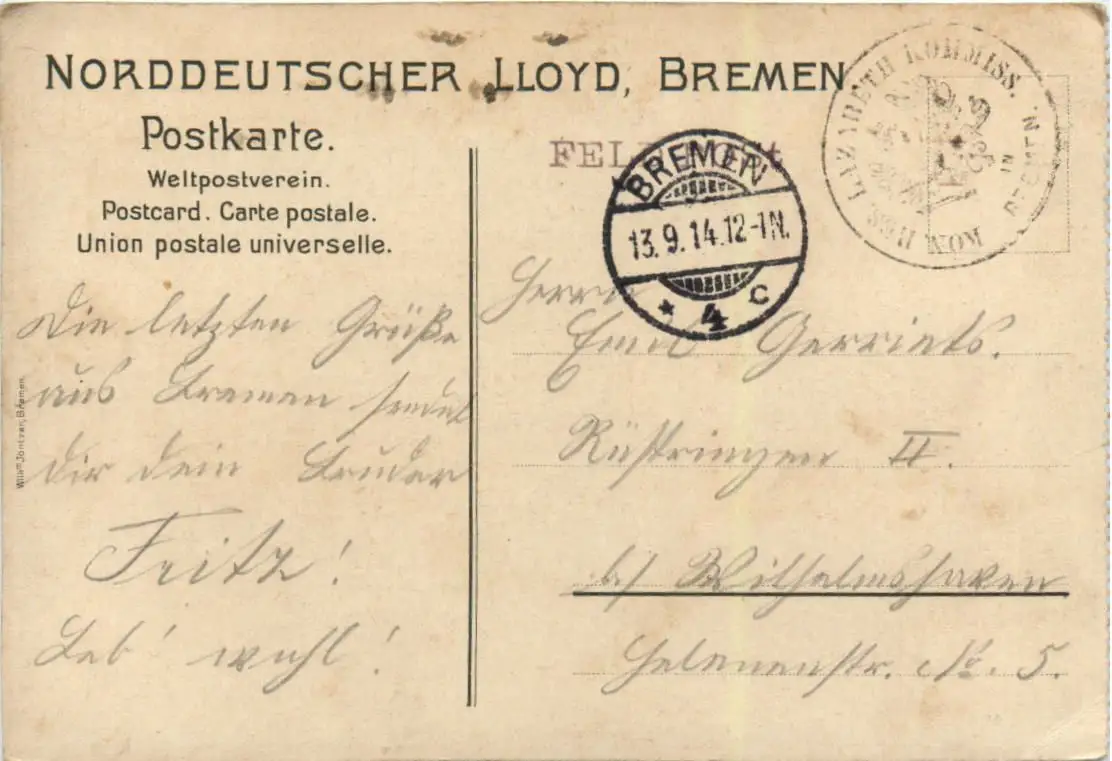 NORDDEUTSCHER LLOYD, BREMEN
Postkarte.
Weltpostverein.
Postcard. Carte postale.
Union postale universelle.
KÖN. RES. LAZARETH KOMMISS.
IN
BREMEN.
BREMEN
13.9.14.12-1N.
* 4 c
Die letzten Grüße
aus Bremen sendet
dir dein Bruder
Fritz!
Leb' wohl!
Herrn
Emil Gerriets.
Rüstringen II.
b/ Wilhelmshaven
Helenenstr. No. 5.
Willm Jöntzen, Bremen